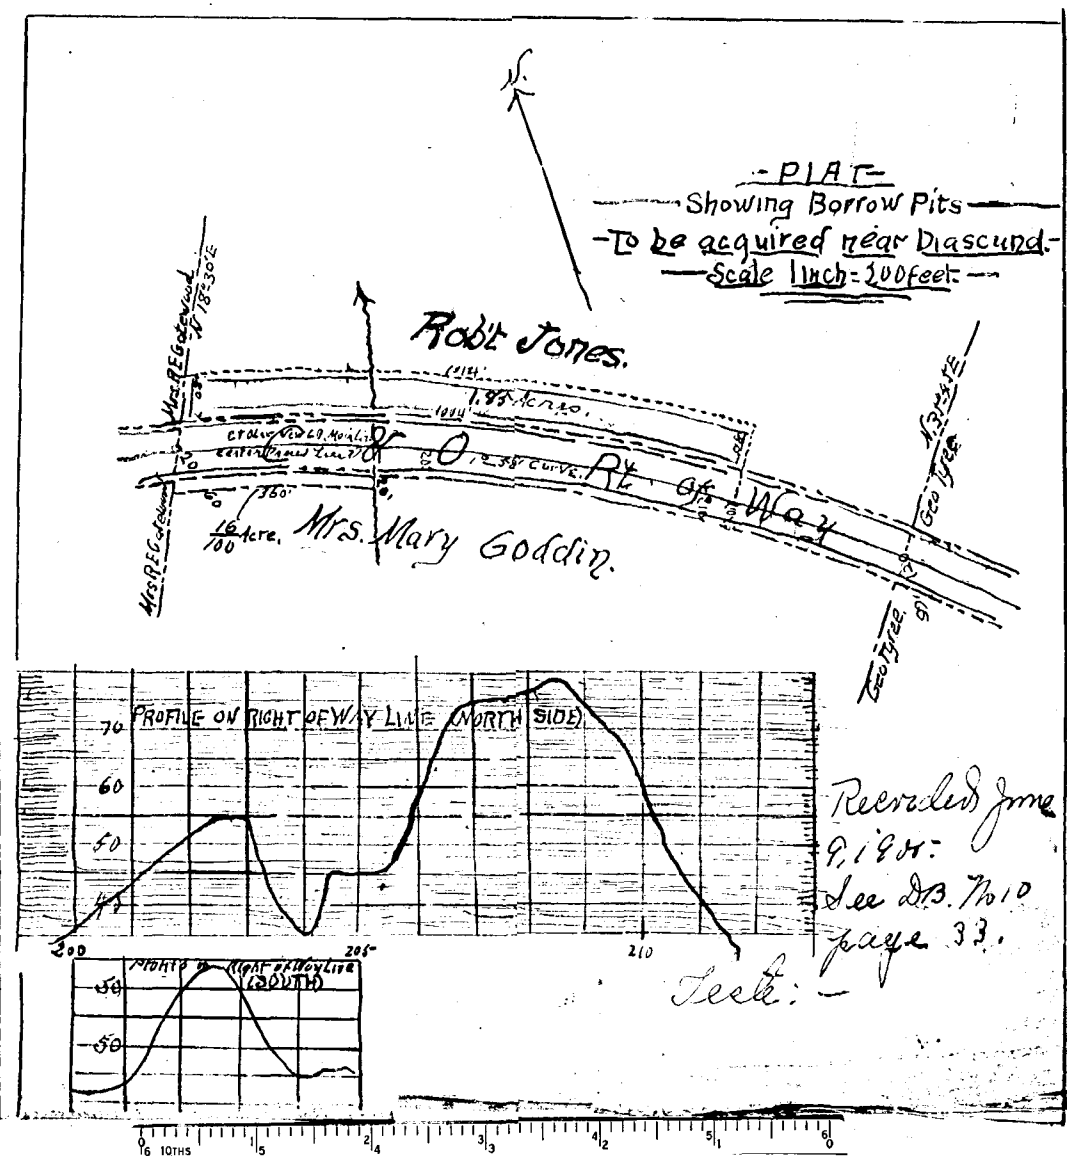 N.
-PLAT-
Showing Borrow Pits
-To be acquired near Diascund.-
Scale 1 inch=200 feet.
Mrs. R E Gatewood
N 18°-30'E
Rob't Jones.
1014'
1.85 Acres.
1004'
80
C & O
1°-38' Curve.
Rt. of Way
20
20'
60
360'
16/100 Acre.
Mrs. Mary Goddin.
Mrs R E Gatewood
Geo Tyree
Geo Tyree.
PROFILE ON RIGHT OF WAY LINE (NORTH SIDE)
70
60
50
200
205
210
Right of Way Line
(SOUTH)
50
50
Recorded June
9, 190
See D.B. No 10
page 33.
Teste: -
6 10THS
5
1 2 3 4 5 6
4 3 2 1 0